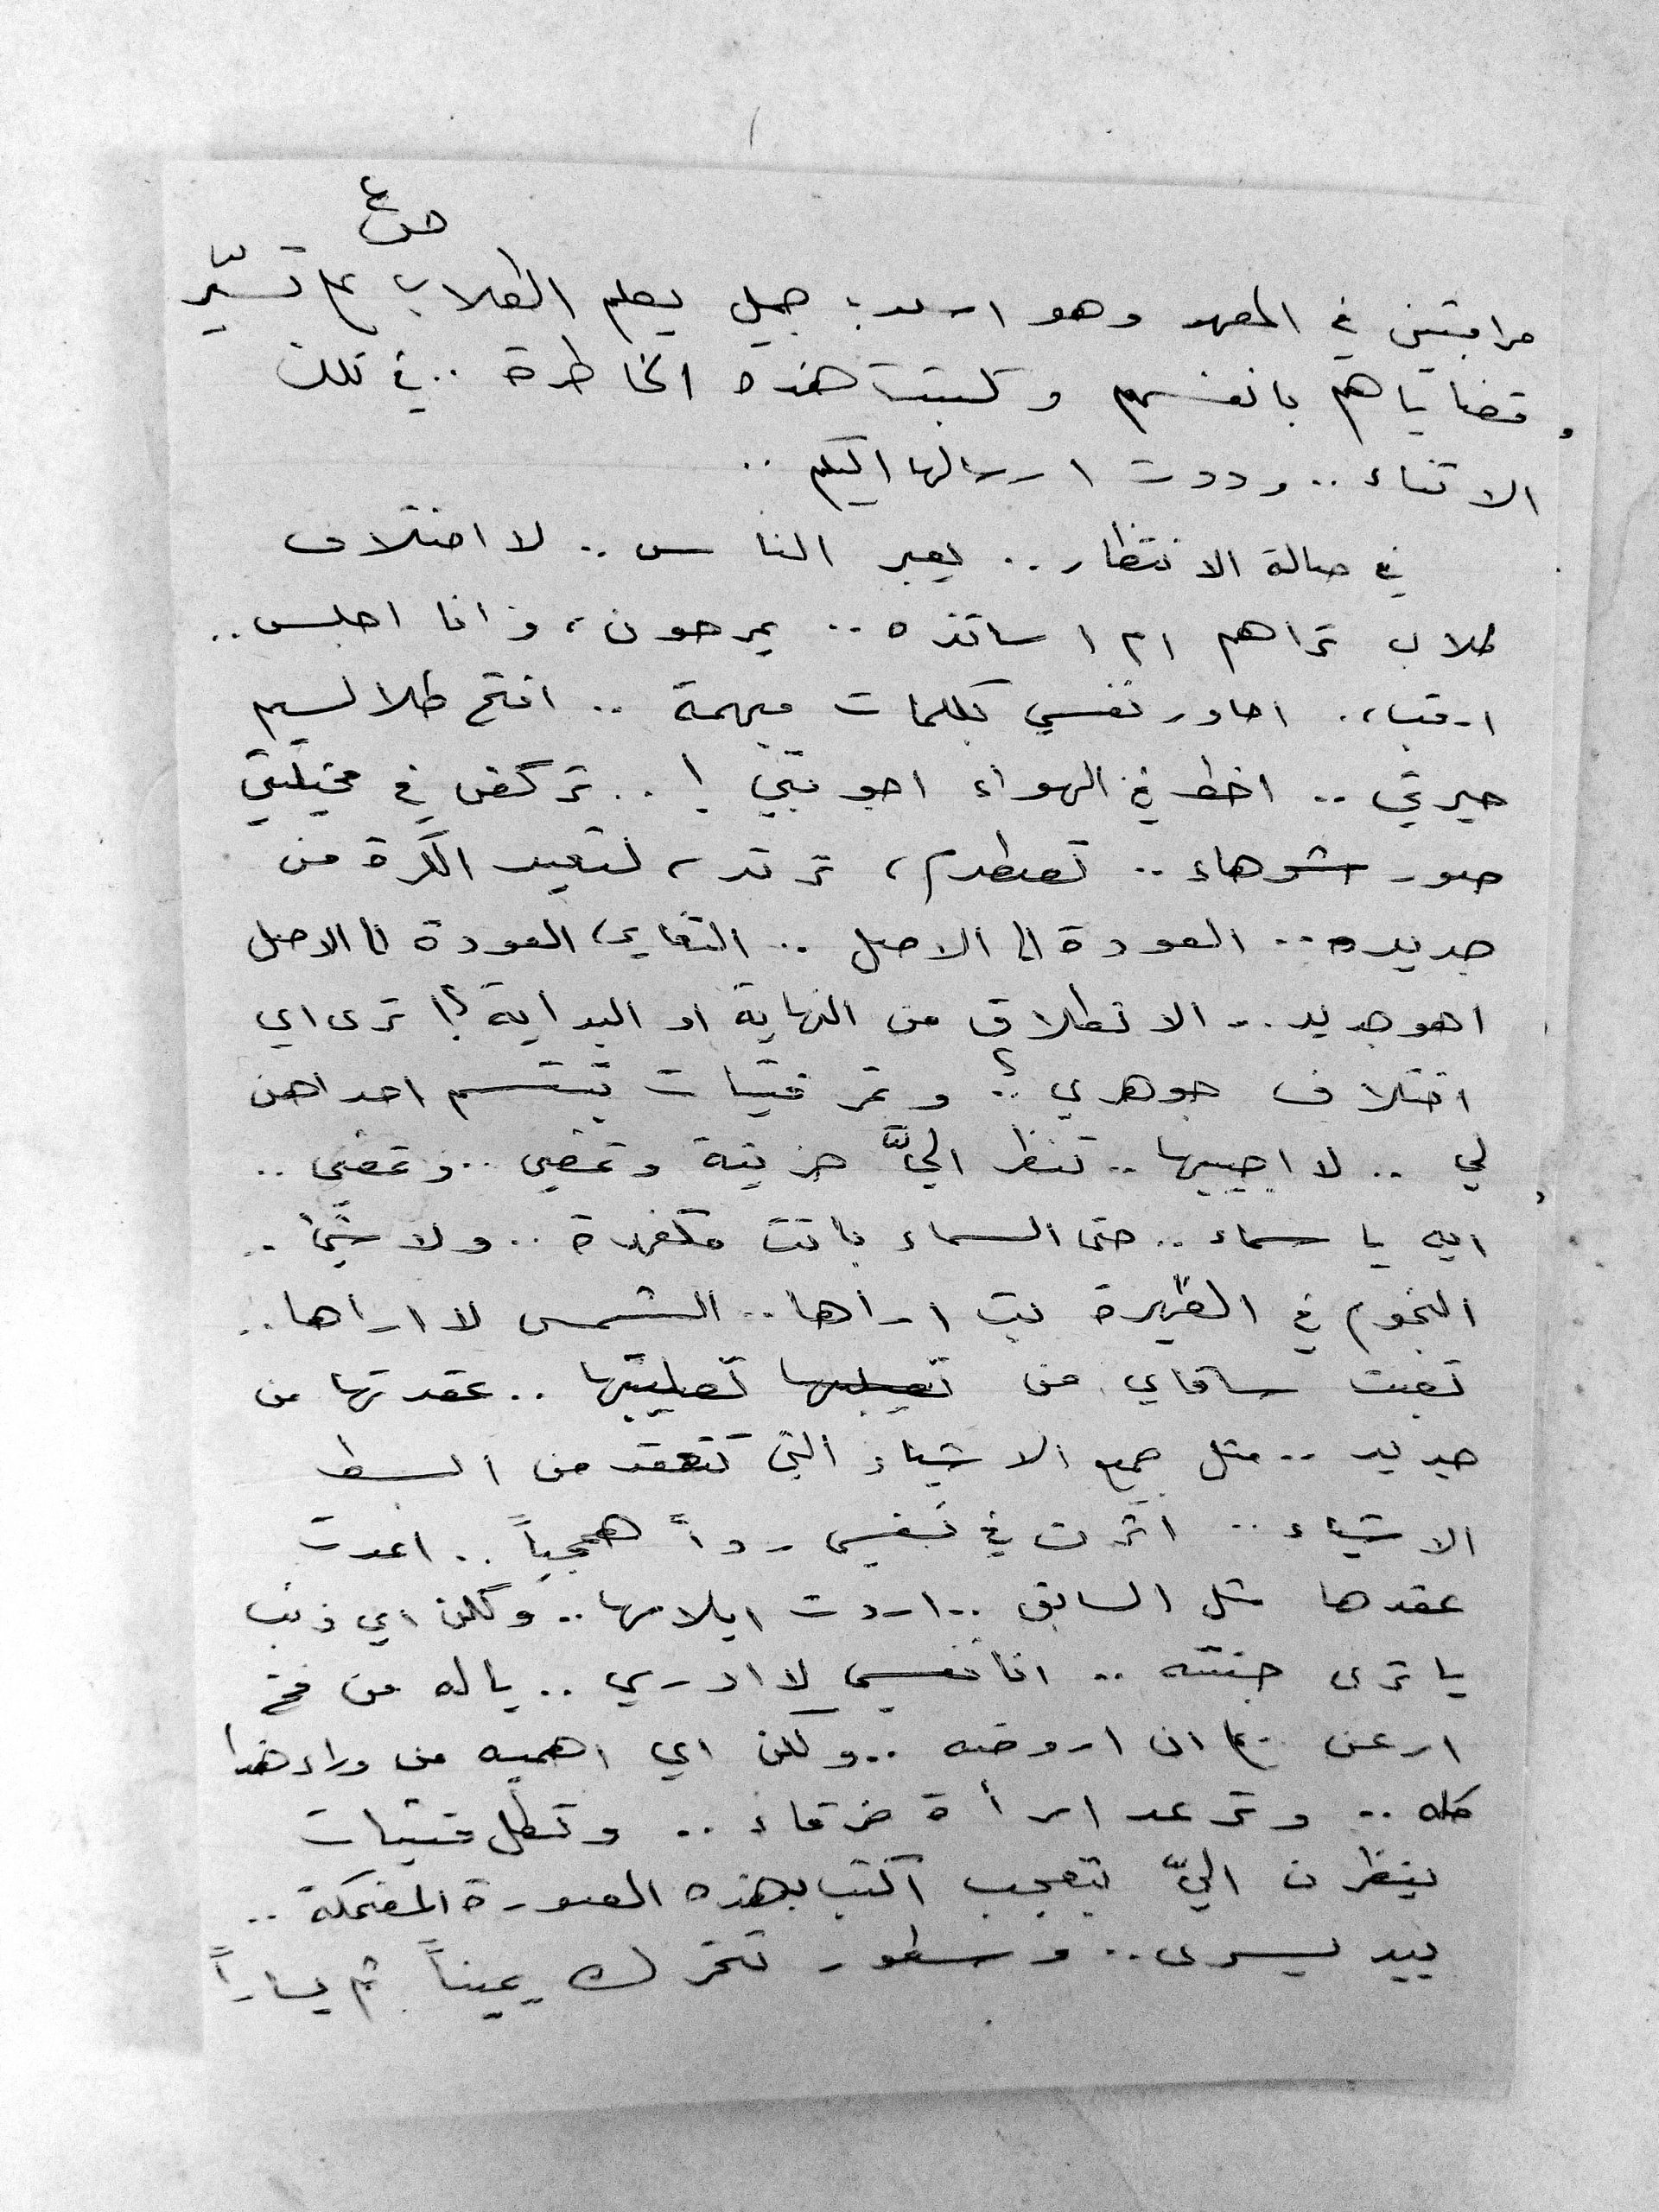 ص٤
مراقبتين في المعهد وهو اسلوب جميل يعلم الطلاب على تسيّر
قضاياهم بانفسهم وكتبت هذه الخاطرة .. في تلك
الاثناء .. وددت ارسالها اليكم ..
في صالة الانتظار .. يعبر الناس .. لا اختلاف
طلاب تراهم ام اساتذه .. يمرحون، وانا اجلس ..
ارقب، احاور نفسي بكلمات مبهمة .. افتح طلاسيم
حيرتي .. اخط في الهواء اجوبتي ! .. تركض في مخيلتي
صور شوهاء .. تصطدم، ترتد، لتعيد الكرة من
جديده .. العودة الى الاصل .. التغاير، العودة الى الاصل
اهو جديد .. الانطلاق من النهاية او البداية ؟! ترى اي
اختلاف جوهري ؟ .. وتمر فتيات تبتسم احداهن
لي .. لا اجيبها .. تنظر اليَّ حزينة وتمضي .. وتمضي ..
ايه يا سماء .. حتى السماء باتت مكفهرة .. ولا شيء ..
النجوم في الظهيرة بت اراها .. الشمس لا اراها ..
تعبت ساقاي من تصليبها .. عقدتها من
جديد .. مثل جميع الاشياء التي تتعقد من ابسط
الاشياء .. اثرت في نفسي رداً همجياً .. اعدت
عقدها مثل السابق .. اردت ايلامها .. ولكن اي ذنب
يا ترى جنته .. انا نفسي لا ادري .. يا له من فخ
ارعن علي ان اروضه .. ولكن اي اهميه من وراء هذا
كله .. وترعد امرأة خرقاء .. وتطل فتيات
ينظرن اليّ بتعجب اكتب بهذه الصورة المضحكة ..
بيد يسرى .. وسطور تتحرك يميناً ثم يساراً